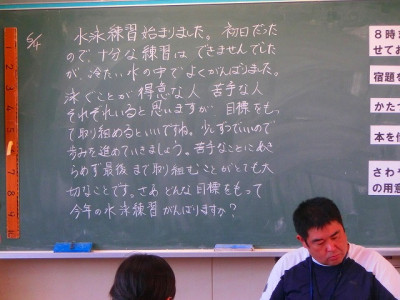 6/4
水泳練習始まりました。初日だった
ので、十分な練習はできませんでした
が、冷たい水の中でよくがんばりました。
泳ぐことが得意な人 苦手な人
それぞれいると思いますが 目標をもっ
て取り組めるといいですね。少しずつでいいので
歩みを進めていきましょう。苦手なことにあき
らめず最後まで取り組むことがとても大
切なことです。さあ どんな目標をもって
今年の水泳練習がんばりますか?
8時
せてお
宿題を
かたて
本を借
さわや
の用意
1
2
3
4
5
6
7
8
9